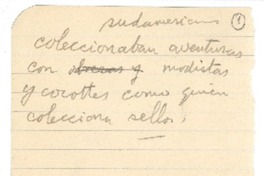 sudamericanos 1
coleccionaban aventuras
con modistas
y cocottes como quien
colecciona sellos,